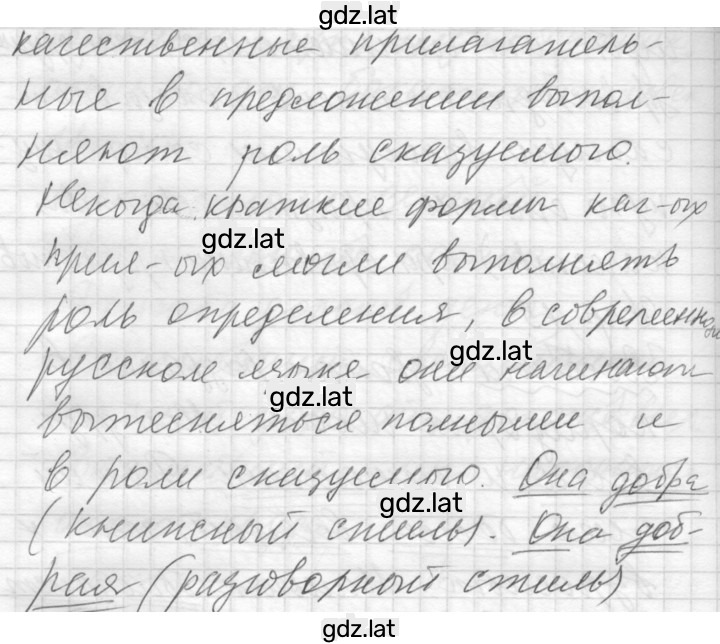 gdz.lat
качественные прилагатель-
ные в предложении выпол-
няют роль сказуемого.
Некогда краткие формы кач-ых
gdz.lat
прил-ых могли выполнять
роль определения, в современном
gdz.lat
русском языке они начинают
gdz.lat
вытесняться полными и
в роли сказуемого. Она добра
gdz.lat
(книжный стиль). Она доб-
рая (разговорный стиль)
gdz.lat